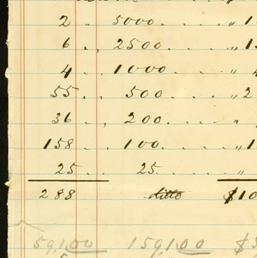 2 .. 5000 .... " 1
6 .. 2500 .... " 1
4 .. 1000 .... "
55 .. 500 .... " 2
36 .. 200 .... "
158 .. 100 .... " 1
25 .. 25 .... "
288 ditto $10
59,100 159,100 $